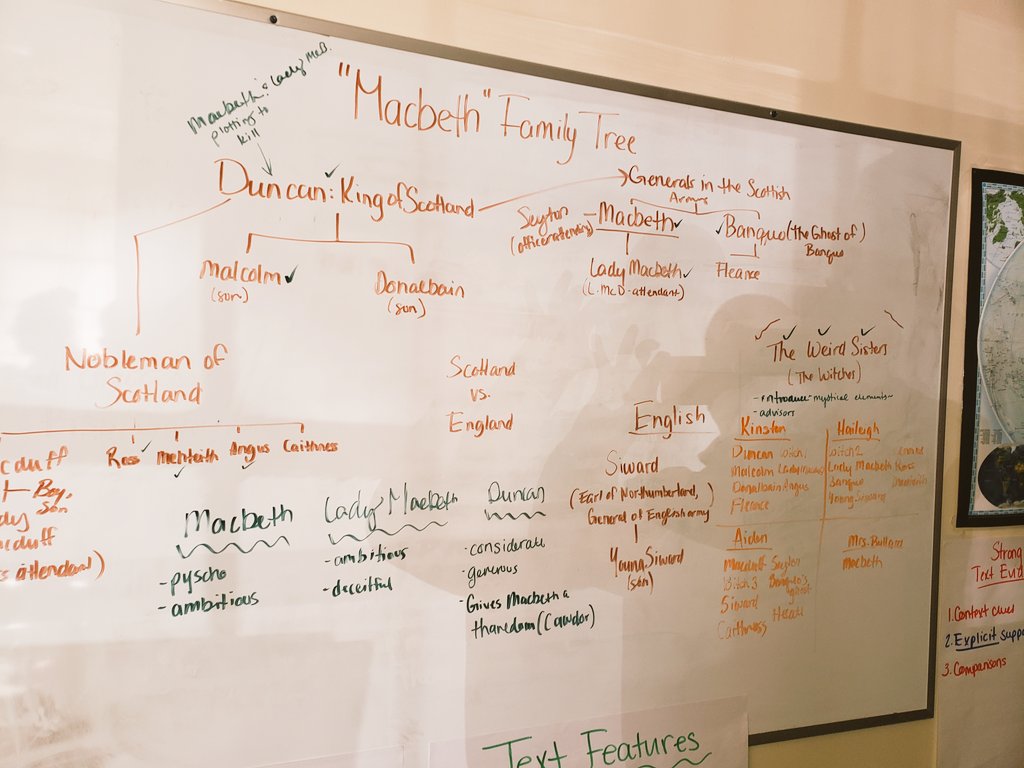 Macbeth & Lady McD.
plotting to
kill
"Macbeth" Family Tree
Duncan: King of Scotland
Generals in the Scottish
Army
Seyton
(officer attending)
Macbeth
Banquo (the Ghost of)
Banquo
Malcolm
(son)
Donalbain
(son)
Lady Macbeth
(L. McD - attendant)
Fleance
Nobleman of
Scotland
cduff
Boy,
Son
dy
cduff
s attendant)
Ross
Menteith
Angus
Caithness
Scotland
vs.
England
The Weird Sisters
(The Witches)
- introduce mystical elements
- advisors
English
Siward
(Earl of Northumberland,)
General of English army
Young Siward
(son)
Macbeth
- pyscho
- ambitious
Lady Macbeth
- ambitious
- deceitful
Duncan
- considerate
- generous
- Gives Macbeth a
thanedom (Cawdor)
Kinston
Duncan Witch 1
Malcolm Lady
Donalbain Angus
Fleance
Haileigh
Witch 2
Lady Macbeth Ross
Banquo
Young Siward
Aidan
Macduff Seyton
Witch 3 Banquo's
ghost
Siward Hecate
Caithness
Mrs.
Macbeth
Text Features
Strong
Text Evid
1. Context clues
2. Explicit suppo
3. Comparisons